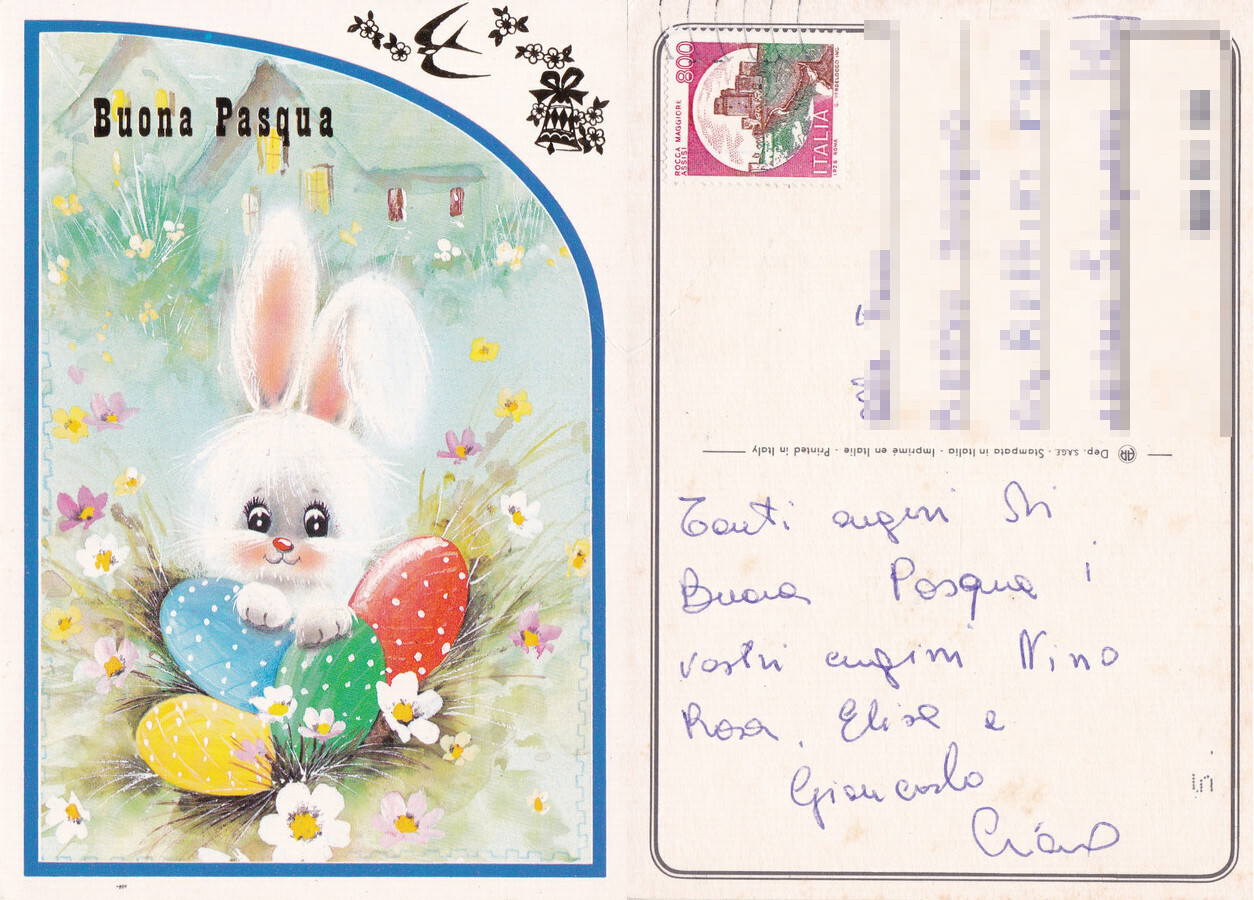 Buona Pasqua
800
ROCCA MAGGIORE
ASSISI
ITALIA
Dep. S.A.G.E. - Stampata in Italia - Imprimé en Italie - Printed in Italy
Tanti auguri di
Buona Pasqua i
vostri cugini Nino
Rosa, Elisa e
Giancarlo
Ciao